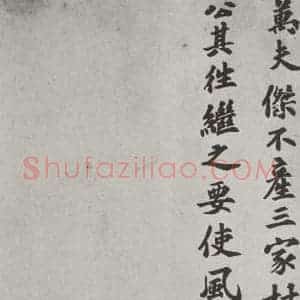 萬夫傑不產三家村
公其往繼之要使風
Shufaziliao.COM